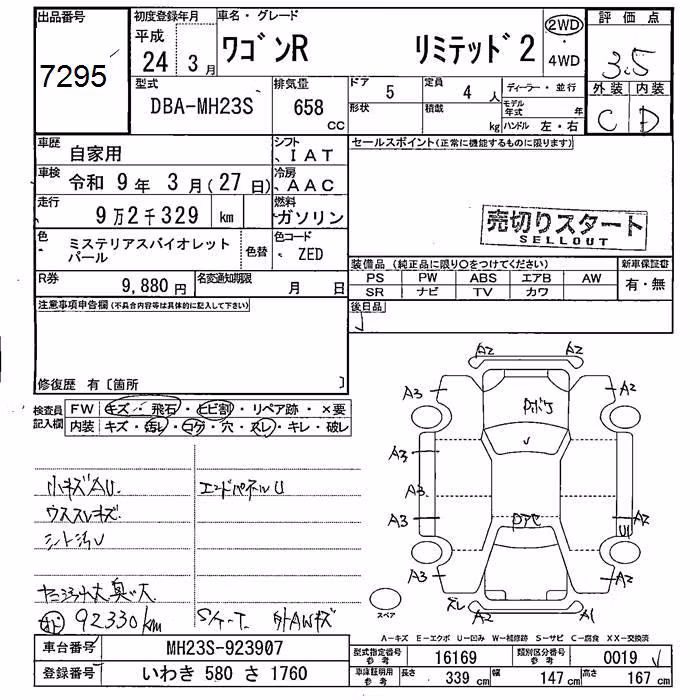 出品番号
7295
初度登録年月
平成
24年 3月
車名・グレード
ワゴンR リミテッド2
2WD
・
4WD
評価点
3.5
外装 内装
C D
型式
DBA-MH23S
排気量
658
CC
ドア
5
定員
4 人
ディーラー・並行
形状
積載
kg
モデル
年式 年
ハンドル 左・右
車歴
自家用
シフト
IAT
車検
令和 9年 3月(27日)
冷房
AAC
走行
9万2千329 km
燃料
ガソリン
色
ミステリアスバイオレット
パール
色替
色コード
ZED
R券
9,880円
名変通知期限
月 日
セールスポイント(正常に機能するものに限ります)
売切りスタート
SELLOUT
装備品(純正品に限り○をつけてください)
新車保証書
PS PW ABS エアB AW
SR ナビ TV カワ
有・無
後日品
注意事項申告欄(不具合内容等は具体的に記入して下さい)
修復歴 有〔箇所 〕
検査員
記入欄
FW キズ・飛石・ヒビ割・リペア跡・×要
内装 キズ・汚レ・コゲ・穴・スレ・キレ・破レ
小キズAU
ウススレキズ
シート汚レ
エンドパネルU
92330km
外AWキズ
A2 A2
A3 A2
A3
A3
A3 A2
U
A3 A2
ズレ
A2 A1
スペア
A-キズ E-エクボ U-凹み W-補修跡 S-サビ C-腐食 XX-交換済
車台番号
MH23S-923907
登録番号
いわき 580 さ 1760
型式指定番号
参考
16169
類別区分番号
参考
0019
車庫証明用
参考
長さ 339 cm
幅 147 cm
高さ 167 cm